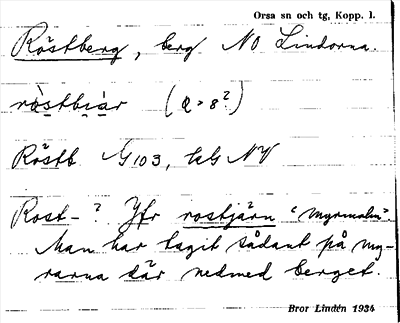 Orsa sn och tg, Kopp. l.
Röstberg, berg NO Lindorna.
(a > 8?)
Röstb. G103, NV
Rost-? Jfr rostjärn "myrmalm".
Man har tagit sådant på my-
rarna där nedmed berget.
Bror Lindén 1934